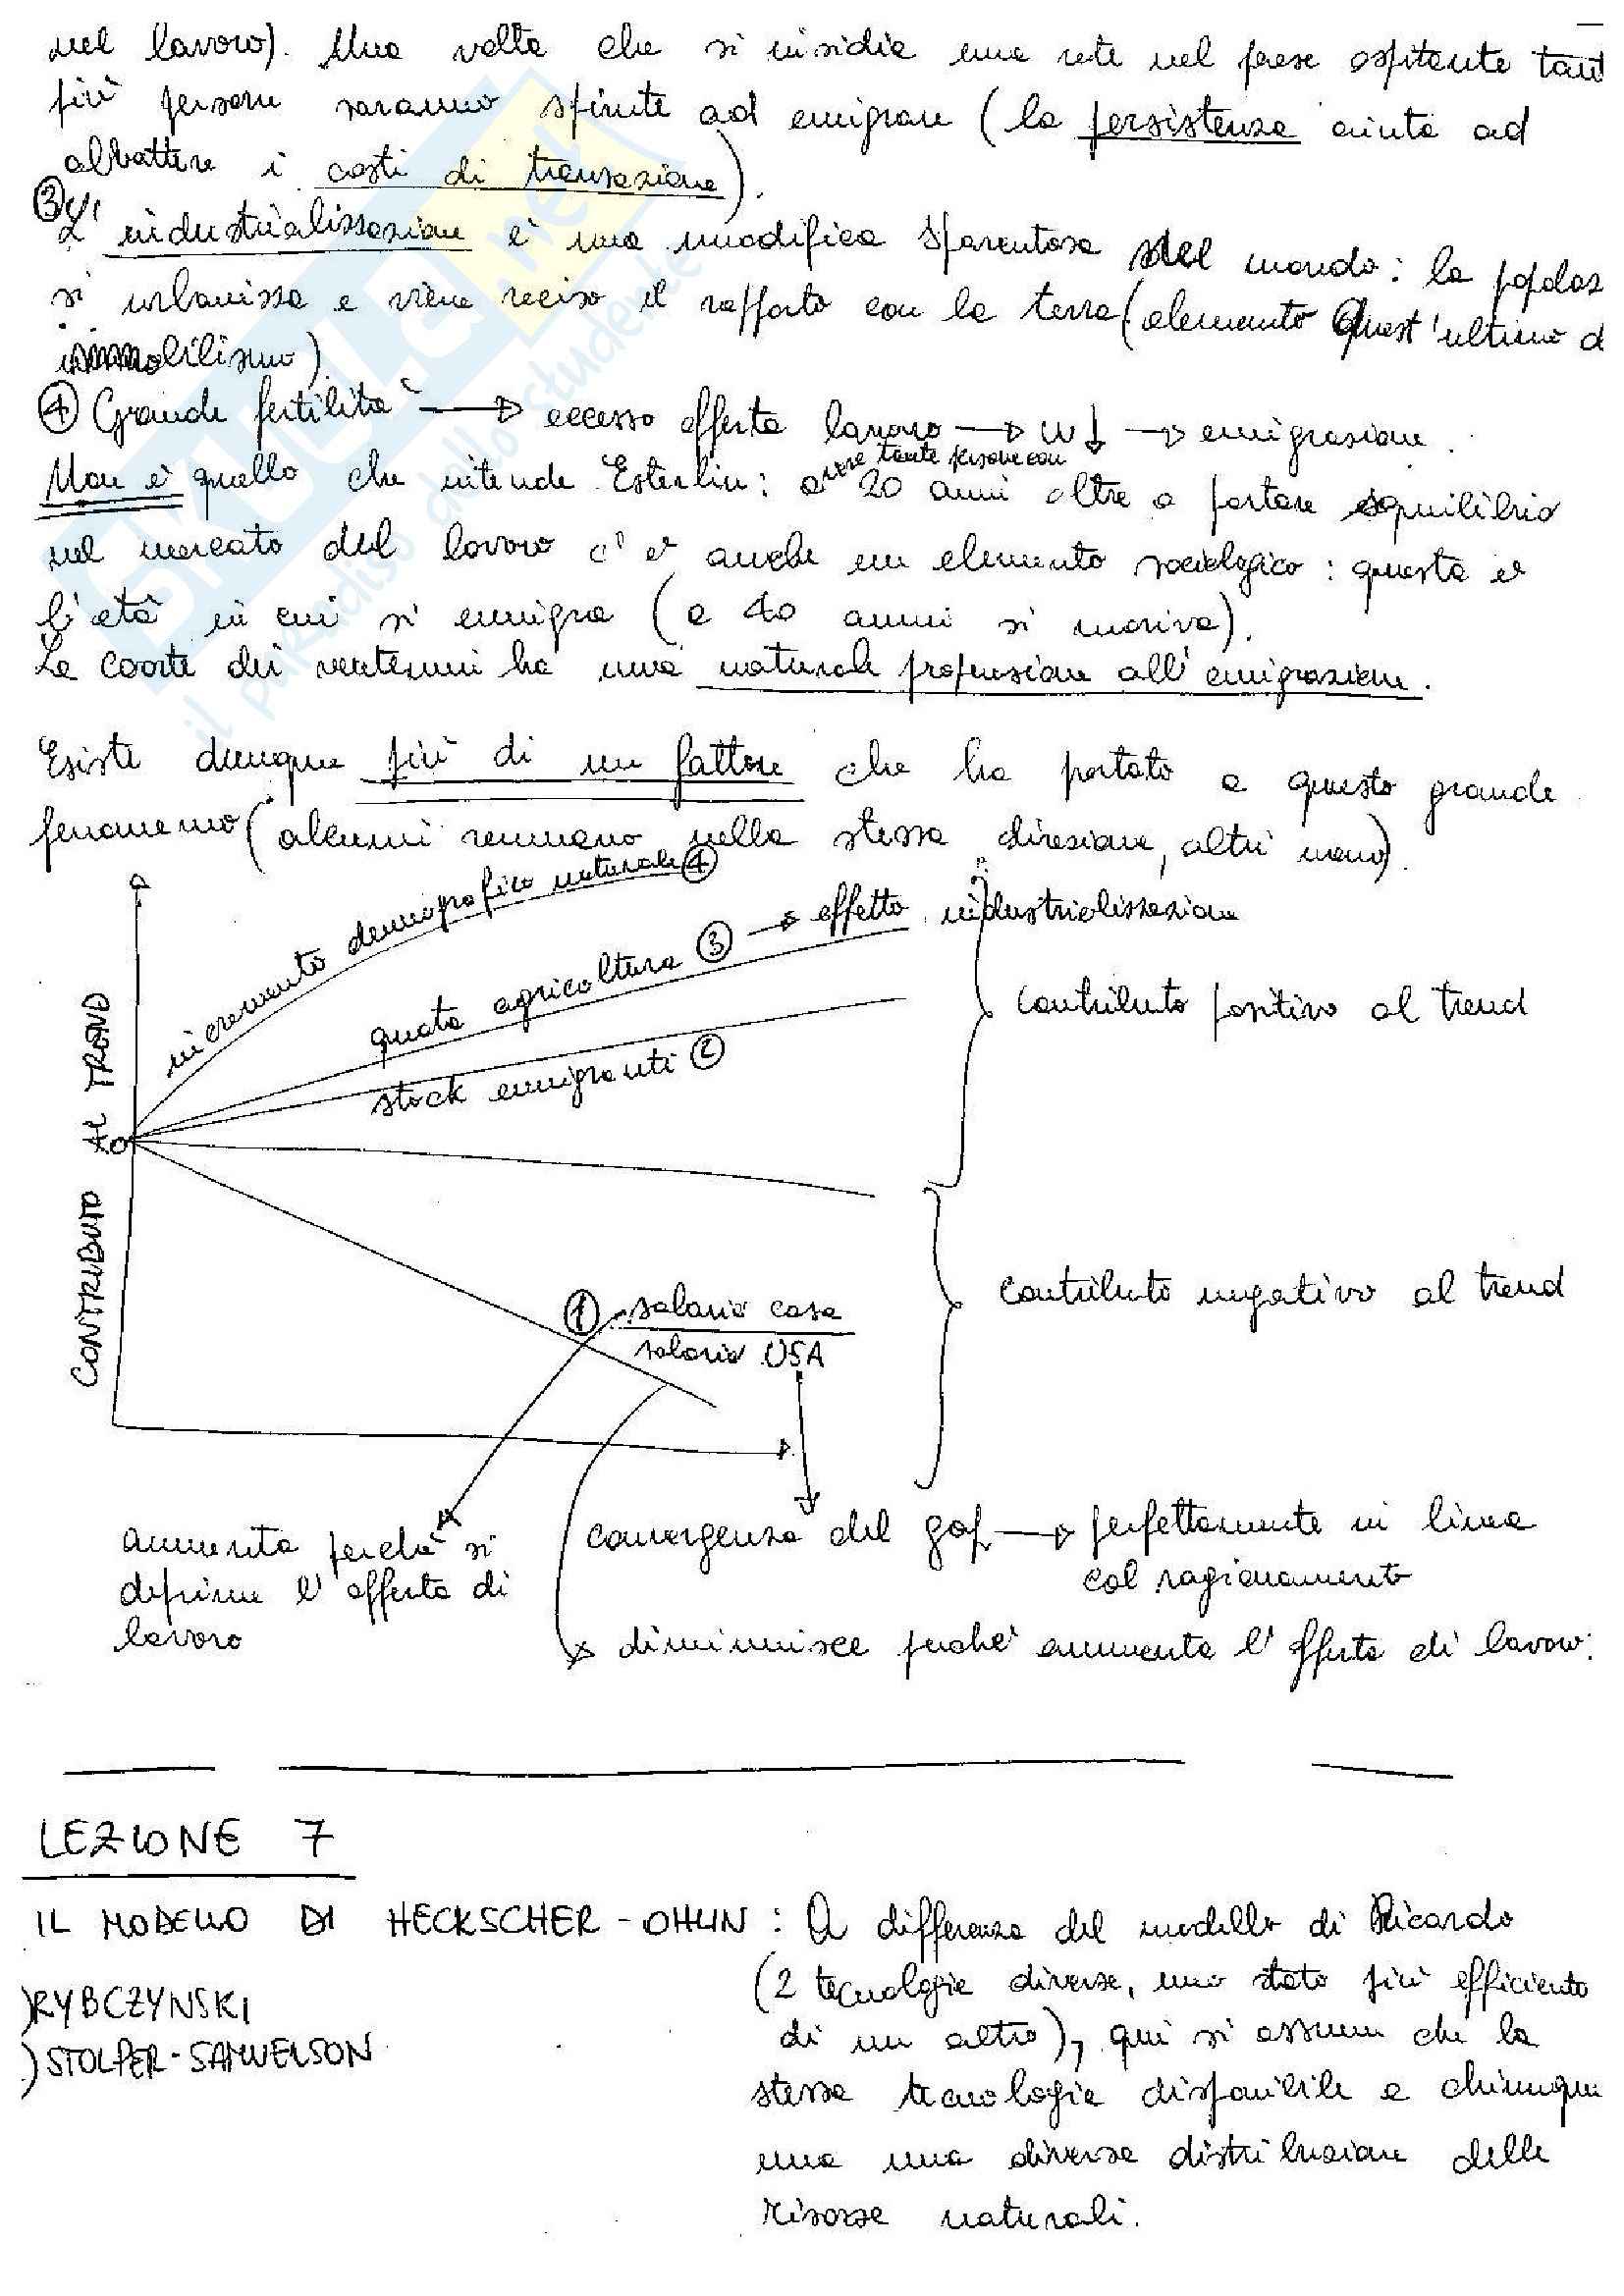 nel lavoro). Una volta che si insidia una rete nel paese ospitante tant
più persone saranno spinte ad emigrare (la persistenza aiuta ad
abbattere i costi di transazione).
③ L'industrializzazione è una modifica spaventosa del mondo: la popolaz
si urbanizza e viene reciso il rapporto con la terra (elemento quest'ultimo d
immobilismo)
④ Grande fertilità → eccesso offerta lavoro → w ↓ → emigrazione.
Non è quello che intende Esterlin: avere tante persone con 20 anni oltre a portare squilibrio
nel mercato del lavoro c'è anche un elemento sociologico: questa è
l'età in cui si emigra (a 40 anni si moriva).
La coorte dei ventenni ha una naturale propensione all'emigrazione.
Esiste dunque più di un fattore che ha portato a questo grande
fenomeno (alcuni remmano nella stessa direzione, altri meno).
incremento demografico naturale ④
quota agricoltura ③ → effetto industrializzazione
stock emigranti ②
contributo positivo al trend
CONTRIBUTO AL TREND
① salario casa
salario USA
contributo negativo al trend
aumenta perché si
deprime l'offerta di
lavoro
convergenza del gap → perfettamente in linea
col ragionamento
diminuisce perché aumenta l'offerta di lavoro:
LEZIONE 7
IL MODELLO DI HECKSCHER-OHLIN: A differenza del modello di Ricardo
(2 tecnologie diverse, uno stato più efficiente
di un altro), qui si assume che la
stessa tecnologia disponibile a chiunque
ma una diversa distribuzione delle
risorse naturali.
)RYBCZYNSKI
)STOLPER-SAMUELSON
SKUOLA.net
il paradiso dello studente